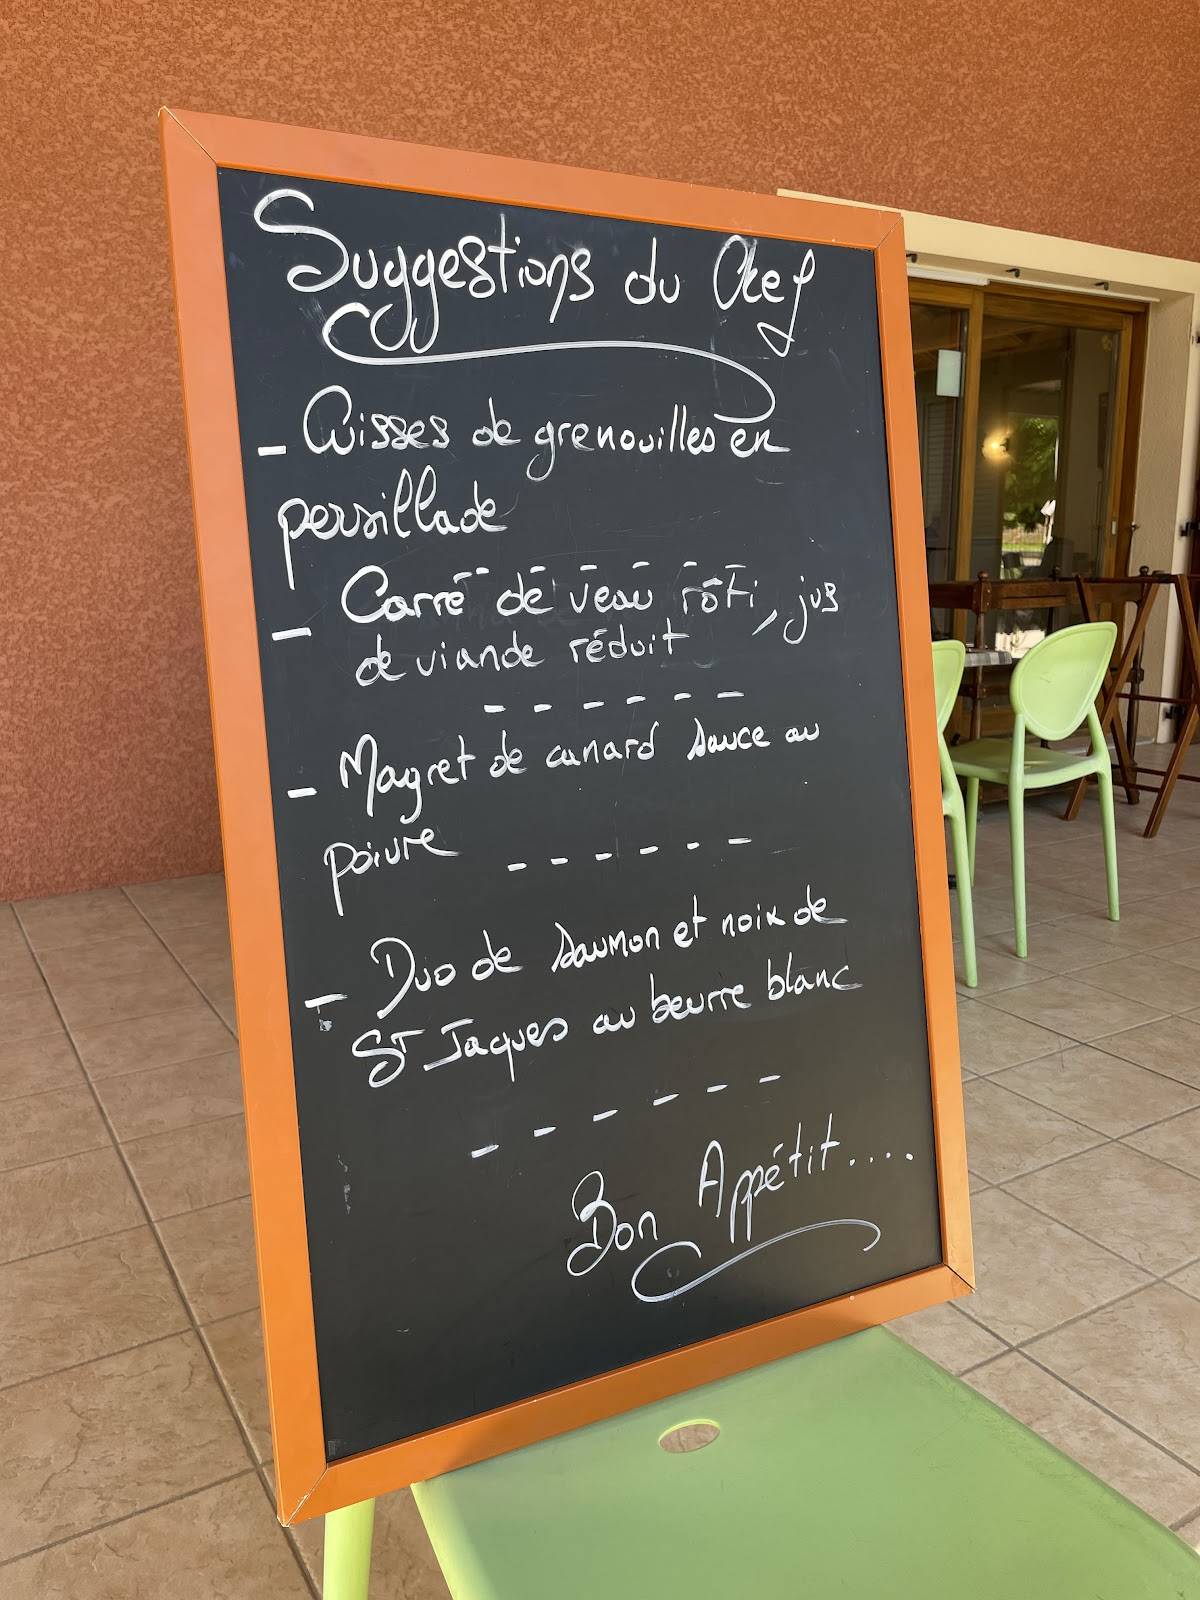 Suggestions du Chef
- Cuisses de grenouilles en
persillade
- Carré de veau rôti, jus
de viande réduit
------
- Magret de canard sauce au
poivre ------
- Duo de saumon et noix de
St Jaques au beurre blanc
------
Bon Appétit....